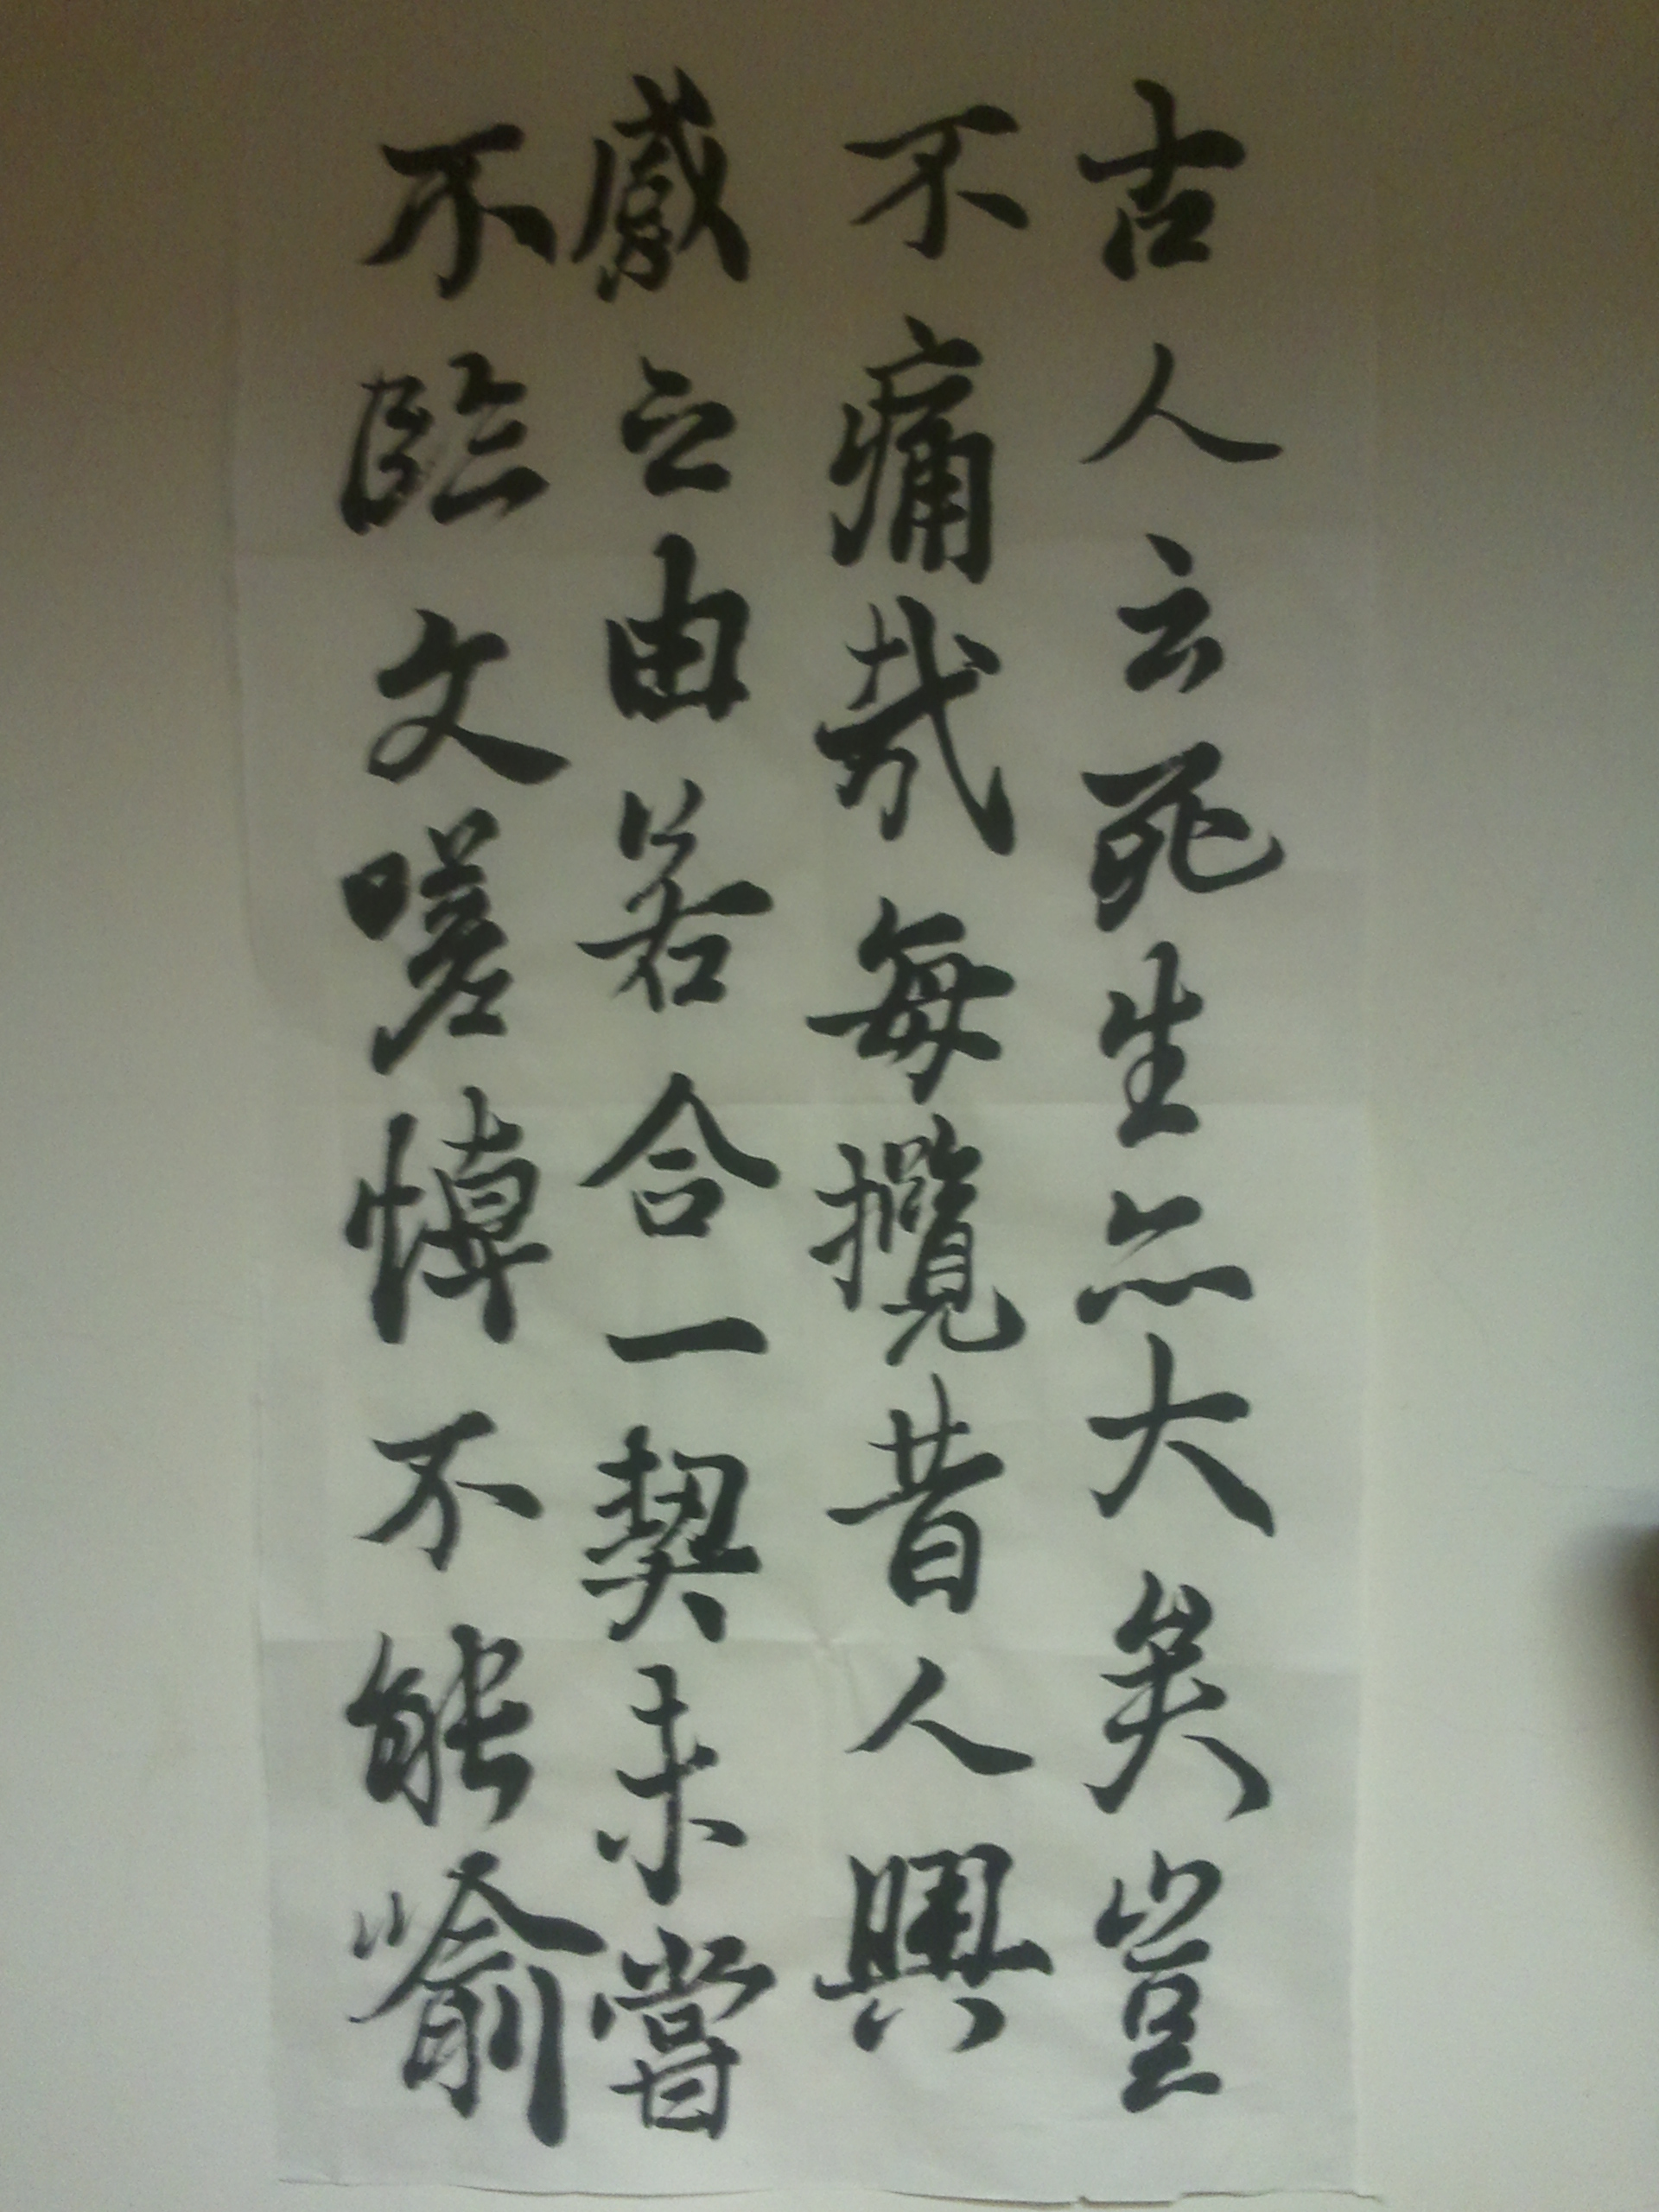 古人云死生亦大矣豈
不痛哉每攬昔人興
感之由若合一契未嘗
不臨文嗟悼不能喻